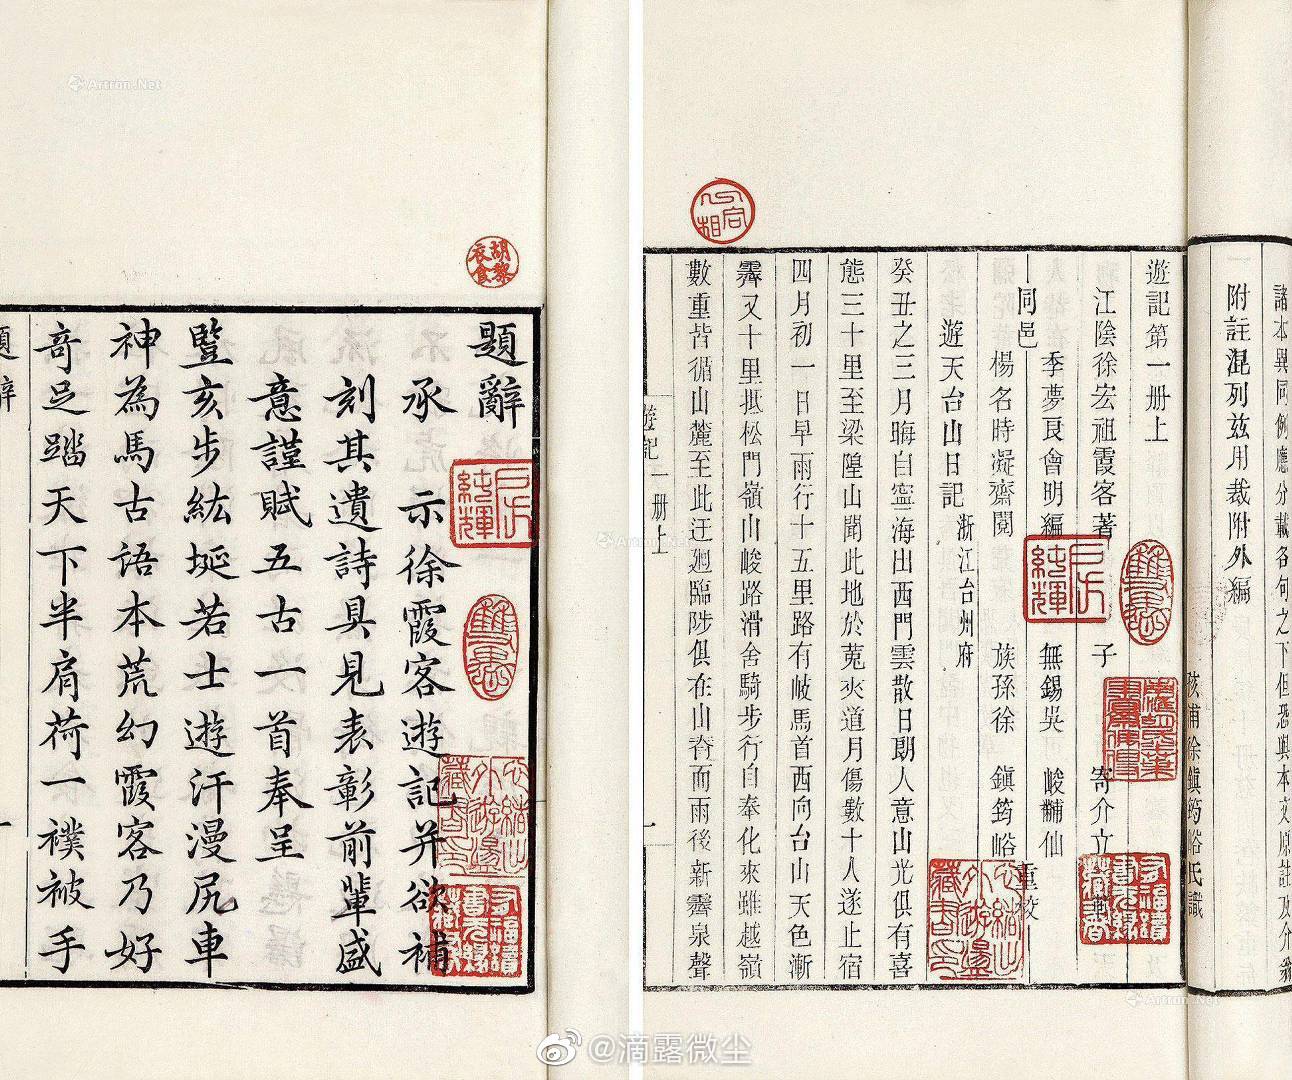 題辭
承　示徐霞客遊記并欲補
刻其遺詩具見表彰前輩盛
意謹賦五古一首奉呈
豎亥步紘埏若士遊汗漫尻車
神為馬古語本荒幻霞客乃好
奇足踏天下半肩荷一襆被手
題辭
胡黎衣食
諸本異同例應分載各句之下但恐與本文原註及介翁
附註混列茲用裁附外編
孩甫徐鎮筠峪氏識
遊記第一册上
江陰徐宏祖霞客著　子　寄介立
季夢良會明編　無錫吳　峻黼仙
同邑　重校
楊名時凝齋閱　族孫徐　鎮筠峪
遊天台山日記　浙江台州府
癸丑之三月晦自寧海出西門雲散日朗人意山光俱有喜
態三十里至梁隍山聞此地於菟夾道月傷數十人遂止宿
四月初一日早雨行十五里路有岐馬首西向台山天色漸
霽又十里抵松門嶺山峻路滑舍騎步行自奉化來雖越嶺
數重皆循山麓至此迂迴臨陟俱在山脊而雨後新霽泉聲
遊記一册上
一
Artron.Net
@滴露微尘